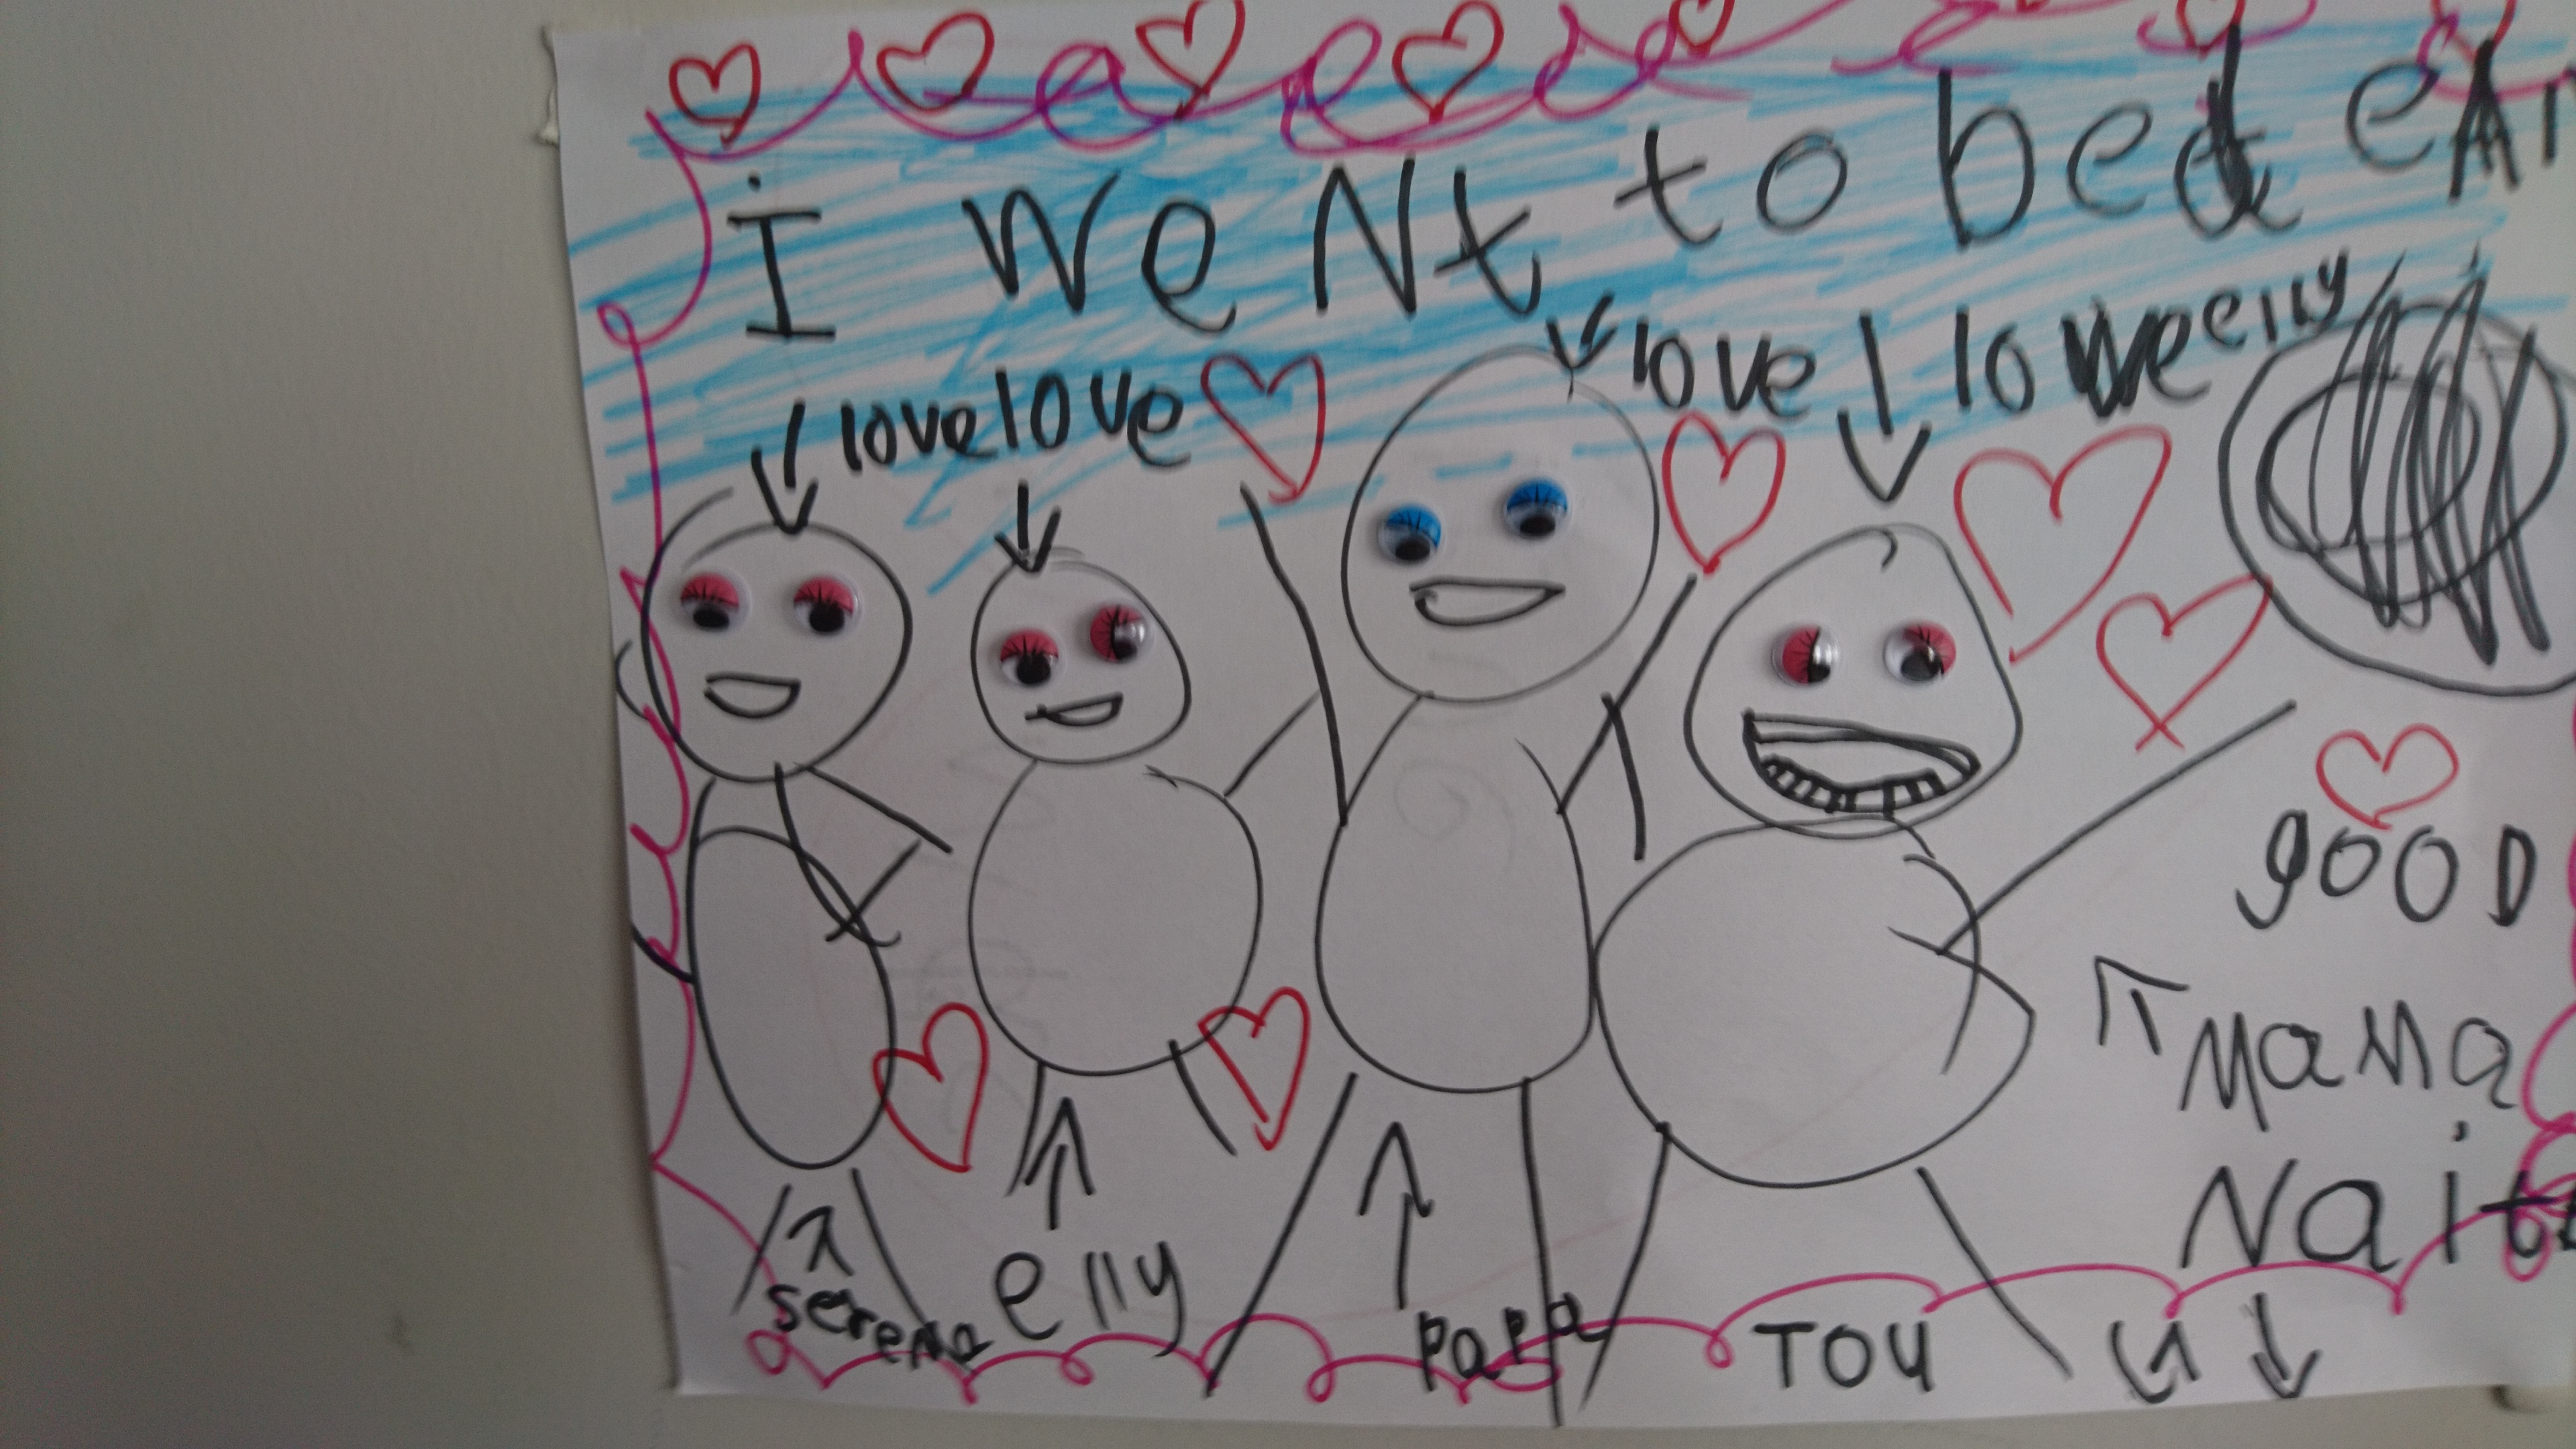 I weNt to bed eAr
lovelove love loWe elly
gOOD
MaMa
Nait
serena elly papa TOU